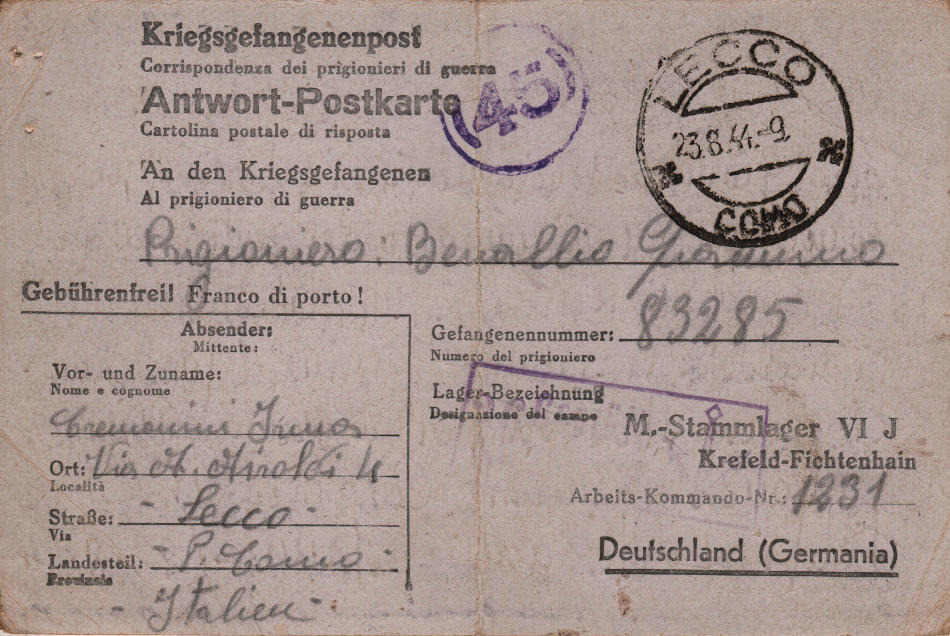 Kriegsgefangenenpost
Corrispondenza dei prigionieri di guerra
Antwort-Postkarte
Cartolina postale di risposta
45
LECCO
23.8.44.-9
COMO
An den Kriegsgefangenen
Al prigioniero di guerra
Prigioniero:
Gebührenfrei! Franco di porto!
Absender:
Mittente:
Vor- und Zuname:
Nome e cognome
Irma
Ort: Via A. Airoldi 4
Località
Straße: - Lecco -
Via
Landesteil: - P. Como -
Provinzia
- Italien -
Gefangenennummer: 83285
Numero del prigioniero
Lager-Bezeichnung
Designazione del campo
M.-Stammlager VI J
Krefeld-Fichtenhain
Arbeits-Kommando-Nr.: 1231
Deutschland (Germania)